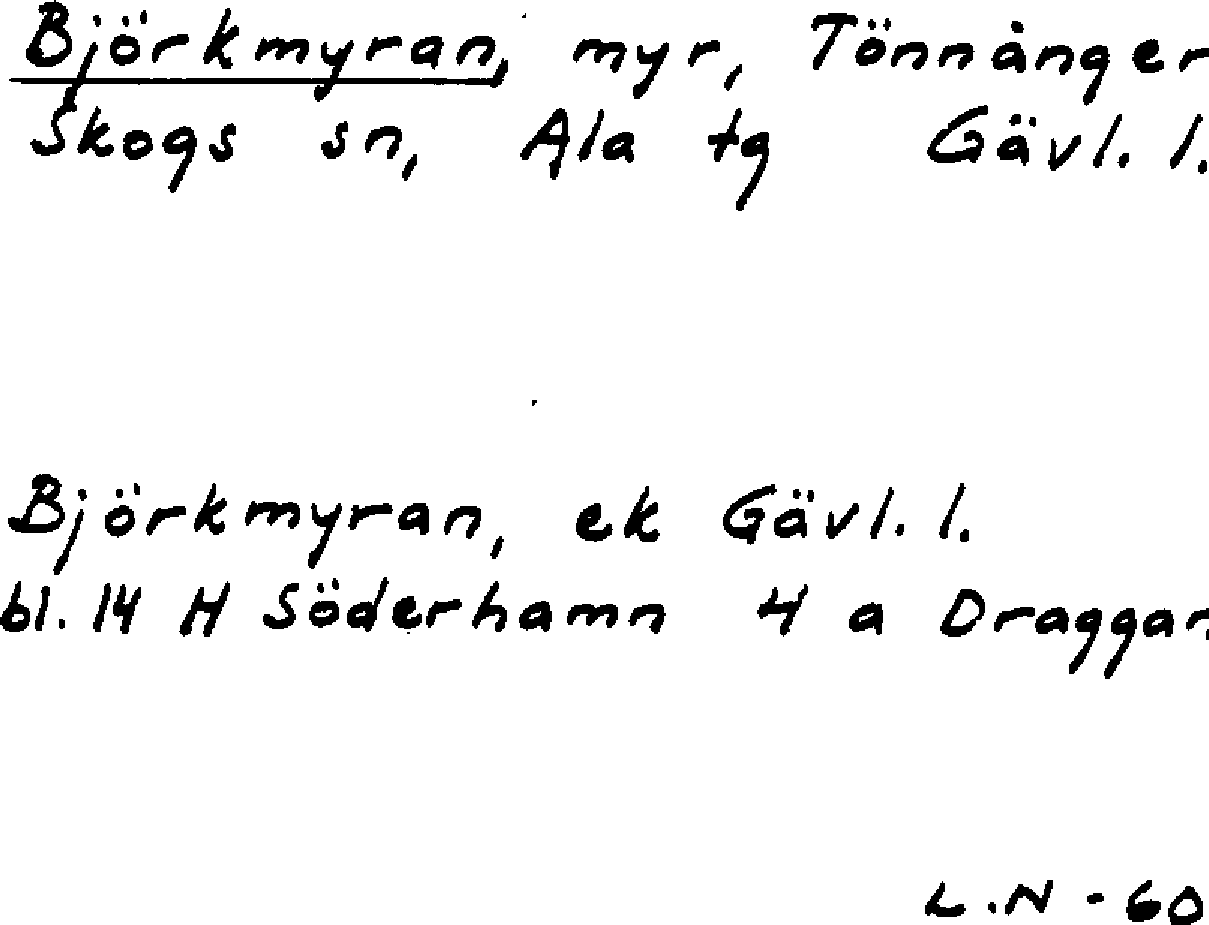 Björkmyran, myr, Tönnånger
Skogs sn, Ala tg Gävl. l.
Björkmyran, ek Gävl. l.
bl. 14 H Söderhamn 4 a Draggan
L.N - 60